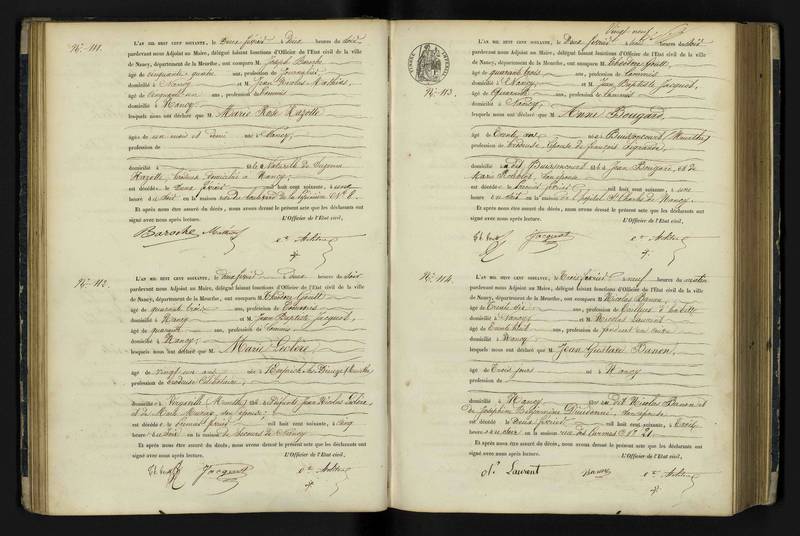 N° 111.
L'AN MIL HUIT CENT SOIXANTE, le Deux février à Deux heures du soir
pardevant nous Adjoint au Maire, délégué faisant fonctions d'Officier de l'Etat civil de la ville
de Nancy, département de la Meurthe, ont comparu M. Joseph Baroche
âgé de cinquante quatre ans, profession de
domicilié à Nancy et M. Jean Nicolas Mathieu
âgé de cinquante un ans, profession de Commis
domicilié à Nancy
lesquels nous ont déclaré que M Marie Rose Hazotte
âgée de un mois et demi née à Nancy,
profession de
domicilié à est à Naturelle de Suzanne
Hazotte, domiciliée à Nancy;
est décédée le Deux février mil huit cent soixante, à une
heure du soir en la maison N° 8.
Et après nous être assuré du décès, nous avons dressé le présent acte que les déclarants ont
signé avec nous après lecture. L'Officier de l'Etat civil,
Baroche Mathieu
N° 112.
L'AN MIL HUIT CENT SOIXANTE, le deux février à Deux heures du soir
pardevant nous Adjoint au Maire, délégué faisant fonctions d'Officier de l'Etat civil de la ville
de Nancy, département de la Meurthe, ont comparu M. Théodore Goutt
âgé de quarante trois ans, profession de Commis
domicilié à Nancy et M. Jean Baptiste Jacquot,
âgé de quarante ans, profession de Commis
domicilié à Nancy;
lesquels nous ont déclaré que M Marie Leclère
âgé de vingt un ans née à (Meurthe)
profession de brodeuse Célibataire;
domiciliée à (Meurthe) Jean Nicolas Leclère
et de Marie son épouse;
est décédée le premier février mil huit cent soixante, à cinq
heures du soir en la maison de Secours de Nancy
Et après nous être assuré du décès, nous avons dressé le présent acte que les déclarants ont
signé avec nous après lecture. L'Officier de l'Etat civil,
Jacquot
Vingt neuf
L'AN MIL HUIT CENT SOIXANTE, le Deux février à trois heures du soir
pardevant nous Adjoint au Maire, délégué faisant fonctions d'Officier de l'Etat civil de la ville
de Nancy, département de la Meurthe, ont comparu M. Théodore Goutt
âgé de quarante trois ans, profession de Commis
domicilié à Nancy et M. Jean Baptiste Jacquot,
N° 113.
âgé de Quarante ans, profession de Commis
domicilié à Nancy,
lesquels nous ont déclaré que M Anne Bougard,
âgé de Trente ans née à Buissoncourt (Meurthe)
profession de brodeuse, épouse de françois
domicilié à dit Buissoncourt et à Jean Bougard, et de
Marie son épouse
est décédée le premier février mil huit cent soixante, à une
heure du soir en la maison de l'hôpital St Charles de Nancy.
Et après nous être assuré du décès, nous avons dressé le présent acte que les déclarants ont
signé avec nous après lecture. L'Officier de l'Etat civil,
Jacquot
N° 114.
L'AN MIL HUIT CENT SOIXANTE, le Trois février à neuf heures du matin
pardevant nous Adjoint au Maire, délégué faisant fonctions d'Officier de l'Etat civil de la ville
de Nancy, département de la Meurthe, ont comparu M. Nicolas Banon
âgé de Trente six ans, profession de Tailleur d'habits
domicilié à Nancy et M. Nicolas Laurent
âgé de Trente huit ans, profession de
domicilié à Nancy
lesquels nous ont déclaré que M Jean Gustave Banon,
âgé de Trois jours né à Nancy
profession de
domicilié à Nancy dit Nicolas Banon et
de Joséphine son épouse
est décédé le Deux février mil huit cent soixante, à Onze
heures du soir en la maison rue des Carmes N° 21
Et après nous être assuré du décès, nous avons dressé le présent acte que les déclarants ont
signé avec nous après lecture. L'Officier de l'Etat civil,
Laurent Banon